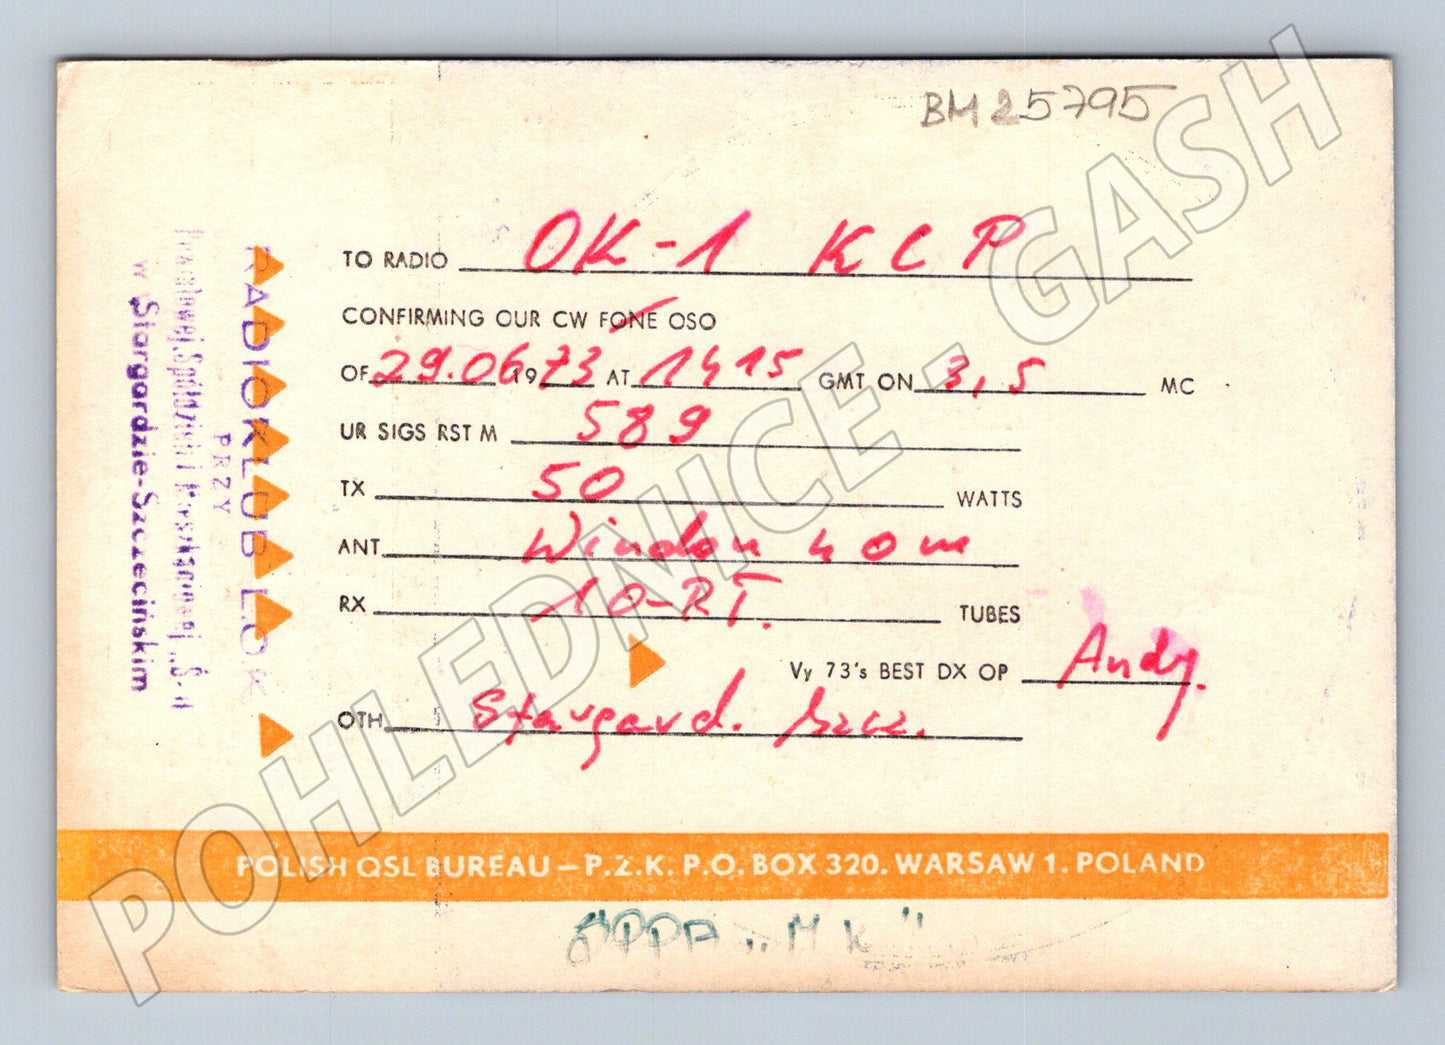 BM25795
TO RADIO OK-1 KCP
CONFIRMING OUR CW FONE QSO
OF 29.06 1973 AT 1415 GMT ON 3,5 MC
UR SIGS RST M 589
TX 50 WATTS
ANT Windom 40m
RX 10-RT. TUBES
Vy 73's BEST DX OP Andy.
QTH Stargard. Szcz.
POLISH QSL BUREAU – P.Z.K. P.O. BOX 320. WARSAW 1. POLAND
"MK"
RADIOKLUB LOK
PRZY
w Stargardzie-Szczecińskim
POHLEDNICE - GASH